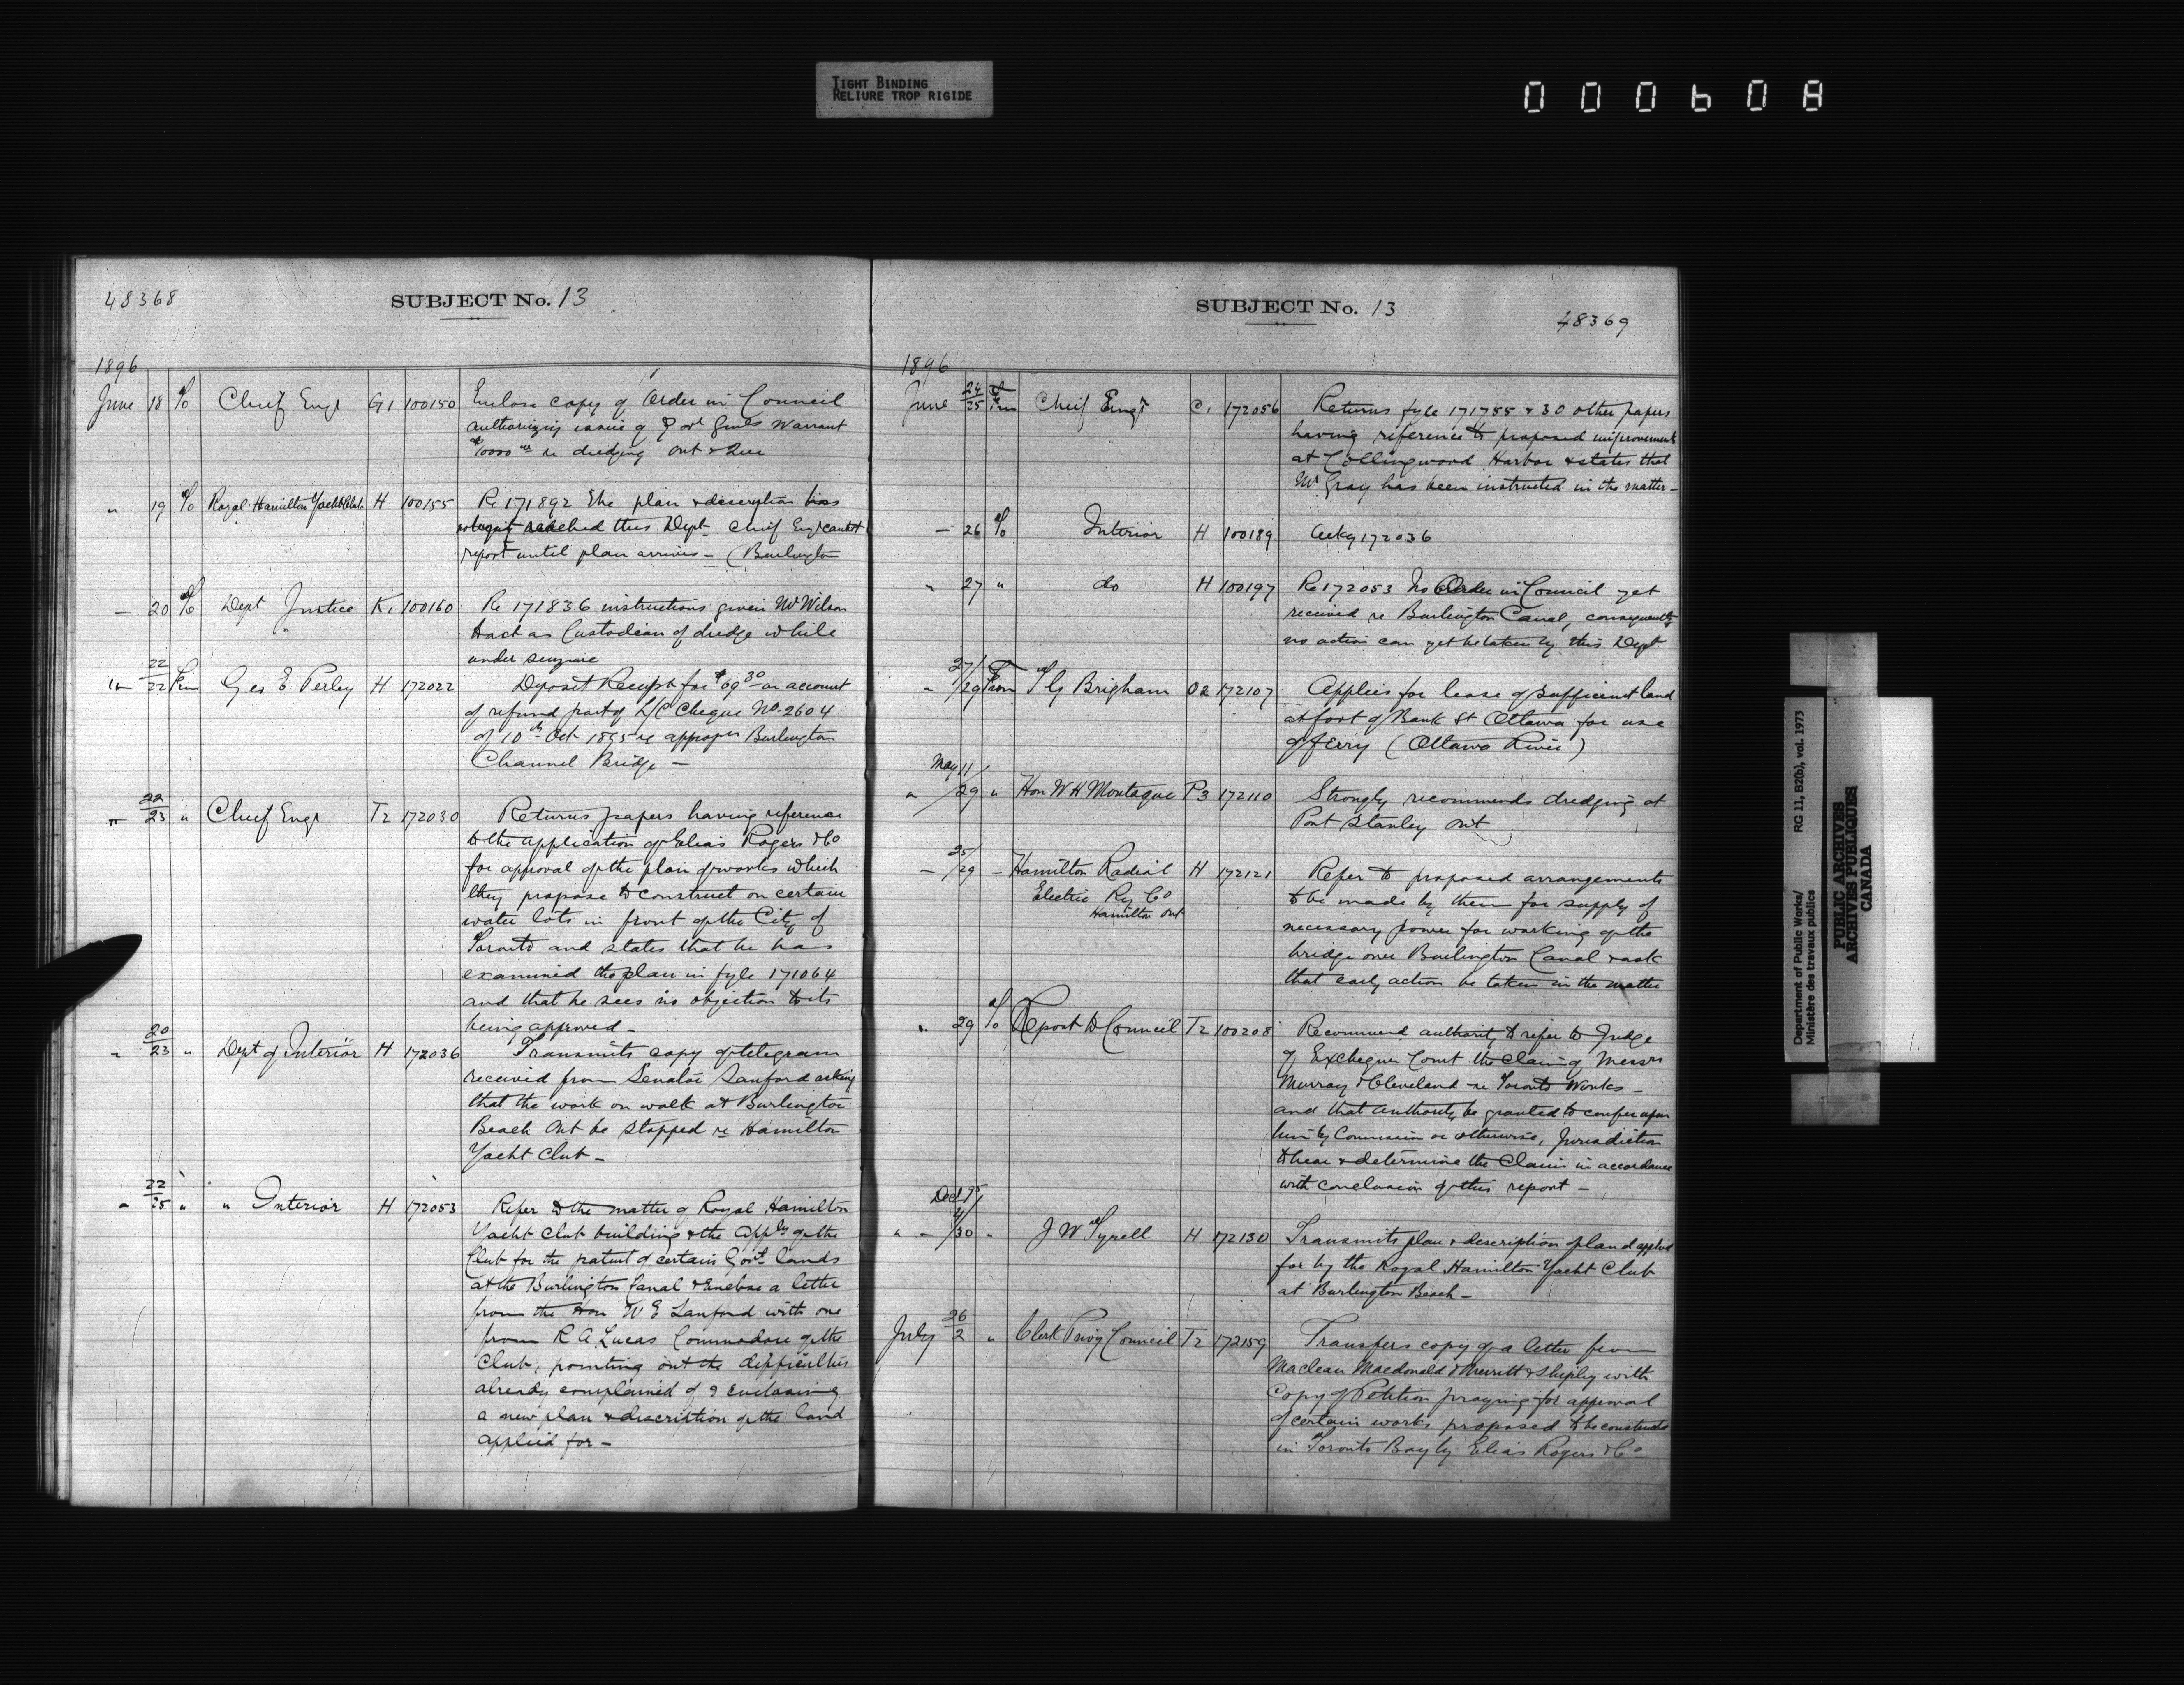 TIGHT BINDING
RELIURE TROP RIGIDE
000608
48368
SUBJECT No. 13
1896
June 18 To Chief Engr G1 100150 Enclose copy of Order in Council
authorizing issue of Govr Genls Warrant
$10000 00 re dredging Ont & Que
" 19 To Royal Hamilton Yacht Club H 100155 Re 171892 The plan & description has
not yet reached this Dept Chief Engr cannot
report until plan arrives - (Burlington
— 20 To Dept Justice K1 100160 Re 171836 instructions given Mr Wilson
to act as Custodian of dredge while
under seizure
" 22/22 From Geo E Perley H 172022 Deposit Receipt for $69 30 on account
of refund part of L/C Cheque No 2604
of 10th Oct 1895 re appropn Burlington
Channel Bridge -
" 22/23 " Chief Engr T2 172030 Returns papers having reference
to the application of Elias Rogers & Co
for approval of the plan of works which
they propose to construct on certain
water lots in front of the City of
Toronto and states that he has
examined the plan in fyle 171064
and that he sees no objection to its
being approved -
" 20/23 " Dept of Interior H 172036 Transmits copy of telegram
received from Senator Sanford asking
that the work on walk at Burlington
Beach Ont be stopped re Hamilton
Yacht Club -
" 22/25 " " Interior H 172053 Refer to the matter of Royal Hamilton
Yacht Club building & the appln of the
Club for the patent of certain Govt lands
at the Burlington Canal & Enclose a letter
from the Hon W E Sanford with one
from R A Lucas Commodore of the
Club, pointing out the difficulties
already complained of & enclosing
a new plan & description of the land
applied for -
SUBJECT No. 13
48369
1896
June 24/25 From Chief Engr C1 172056 Returns fyle 171755 & 30 other papers
having reference to proposed improvements
at Collingwood Harbor & states that
Mr Gray has been instructed in the matter -
— 26 To Interior H 100189 Ackg 172036
" 27 " do H 100197 Re 172053 No Order in Council yet
received re Burlington Canal, consequently
no action can yet be taken by this Dept
" 27/29 From T G Brigham O2 172107 Applies for lease of sufficient land
at foot of Bank St Ottawa for use
of ferry (Ottawa River)
" May 11/29 " Hon W H Montague P3 172110 Strongly recommends dredging at
Port Stanley Ont
— 25/29 — Hamilton Radial H 172121 Refer to proposed arrangements
Electric Ry Co
Hamilton Ont
to be made by them for supply of
necessary power for working of the
bridge over Burlington Canal & ask
that early action be taken in the matter
" 29 To Report to Council T2 100208 Recommend authority to refer to Judge
of Exchequer Court the claim of Messrs
Murray & Cleveland re Toronto Works -
and that authority be granted to confer upon
him by Commission or otherwise, Jurisdiction
to hear & determine the Claim in accordance
with conclusion of this report -
Dec 95
" 4/30 " J W Tyrell H 172130 Transmits plan & description of land applied
for by the Royal Hamilton Yacht Club
at Burlington Beach -
July 26/2 " Clerk Privy Council T2 172159 Transfers copy of a letter from
Maclean Macdonald & Merritt & Shepley with
Copy of Petition praying for approval
of certain works proposed to be constructed
in Toronto Bay by Elias Rogers & Co -
Department of Public Works/ RG 11, B2(b), vol. 1973
Ministère des travaux publics
PUBLIC ARCHIVES
ARCHIVES PUBLIQUES
CANADA